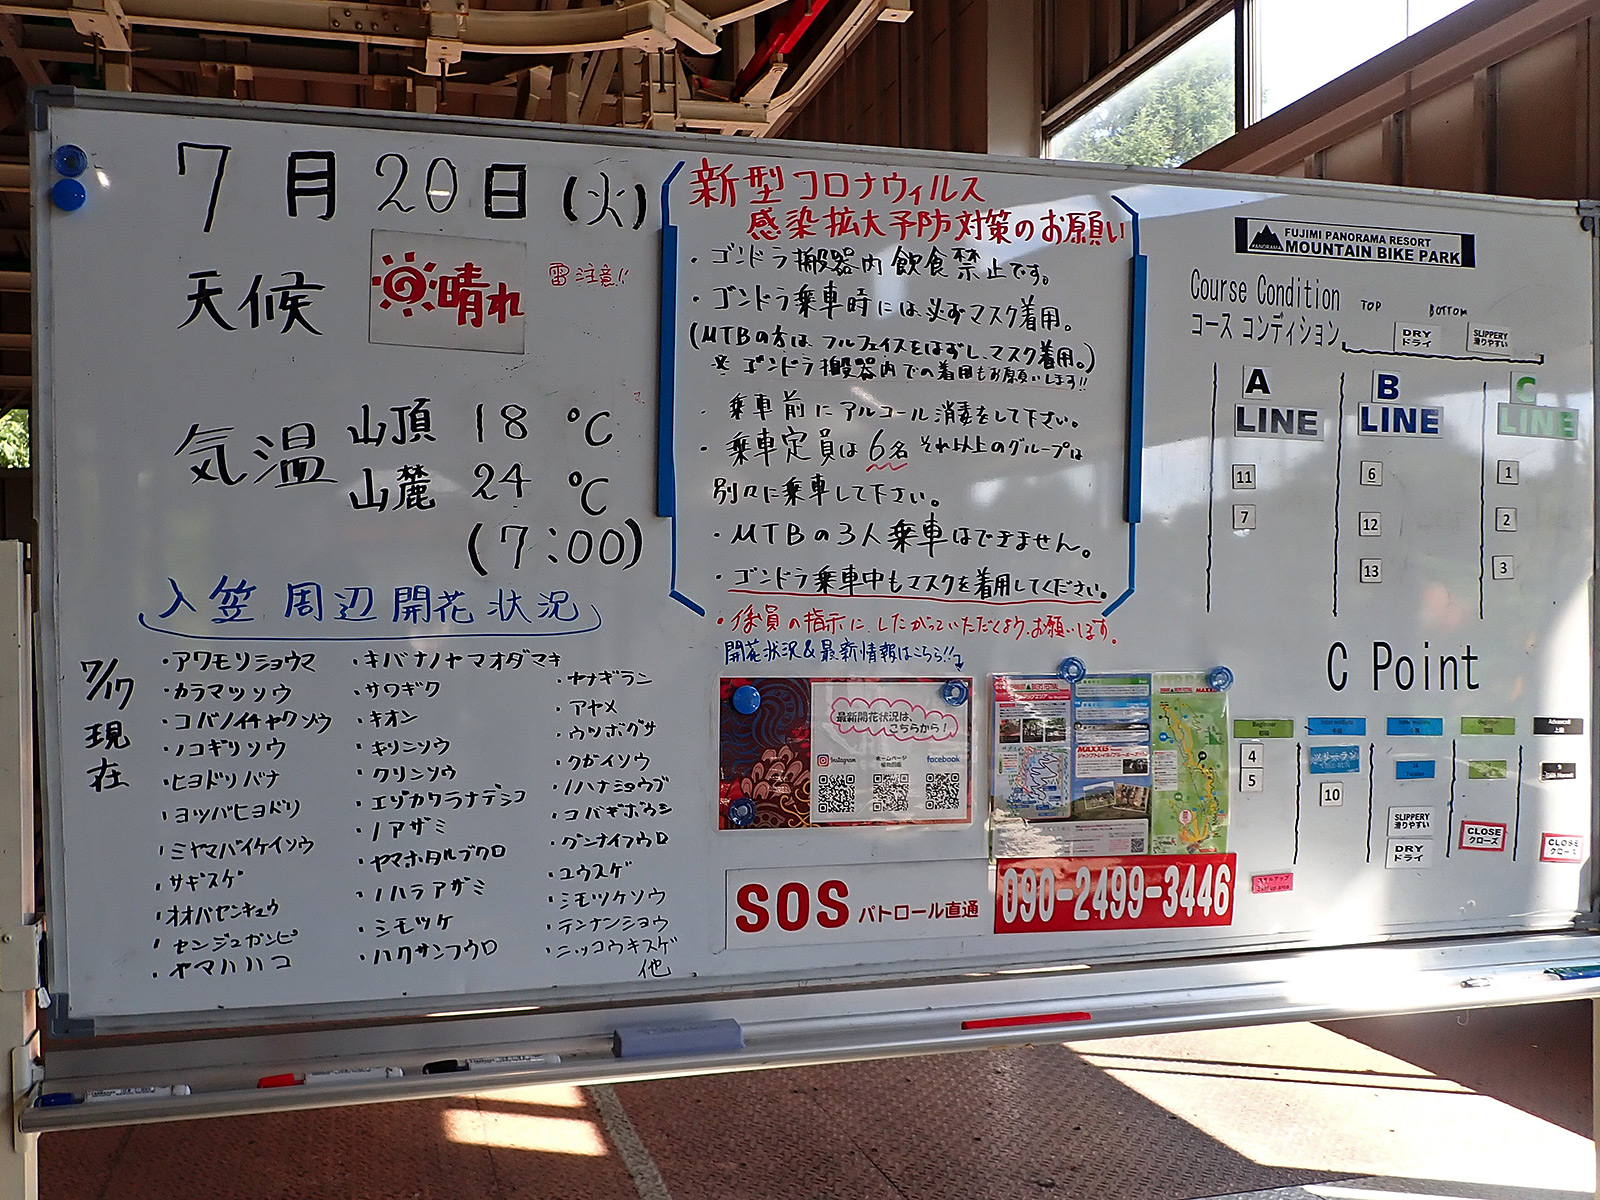 7月20日(火)
天候
晴れ
雷注意!!
気温 山頂 18℃
山麓 24℃
(7:00)
入笠周辺開花状況
7/17現在
・アワモリショウマ
・カラマツソウ
・コバノイチヤクソウ
・ノコギリソウ
・ヒヨドリバナ
・ヨツバヒヨドリ
・ミヤマバイケイソウ
・サギスゲ
・オオバセンキュウ
・センジュガンピ
・ヤマハハコ
・キバナノヤマオダマキ
・サワギク
・キオン
・キリンソウ
・クリンソウ
・エゾカワラナデシコ
・ノアザミ
・ヤマホタルブクロ
・ノハラアザミ
・シモツケ
・ハクサンフウロ
・ヤナギラン
・アヤメ
・ウツボグサ
・クガイソウ
・ノハナショウブ
・コバギボウシ
・グンナイフウロ
・ユウスゲ
・シモツケソウ
・テンナンショウ
・ニッコウキスゲ
他
新型コロナウィルス
感染拡大予防対策のお願い
・ゴンドラ搬器内飲食禁止です。
・ゴンドラ乗車時には必ずマスク着用。
(MTBの方は、フルフェイスをはずし、マスク着用。)
※ゴンドラ搬器内での着用もお願いします!!
・乗車前にアルコール消毒をして下さい。
・乗車定員は6名それ以上のグループは
別々に乗車して下さい。
・MTBの3人乗車はできません。
・ゴンドラ乗車中もマスクを着用してください。
・係員の指示に、したがっていただくよう、お願いします。
開花状況&最新情報はこちら!!
最新開花状況は、
こちらから!
Instagram
ホームページ
facebook
MAXXIS
SOS パトロール直通
090-2499-3446
PANORAMA
FUJIMI PANORAMA RESORT
MOUNTAIN BIKE PARK
Course Condition TOP BOTTOM
コースコンディション
DRY
ドライ
SLIPPERY
滑りやすい
A
LINE
11
7
B
LINE
6
12
13
C
LINE
1
2
3
C Point
Beginner
初級
4
5
10
SLIPPERY
滑りやすい
DRY
ドライ
CLOSE
クローズ
Advanced
上級
CLOSE
クローズ
スキルアップ